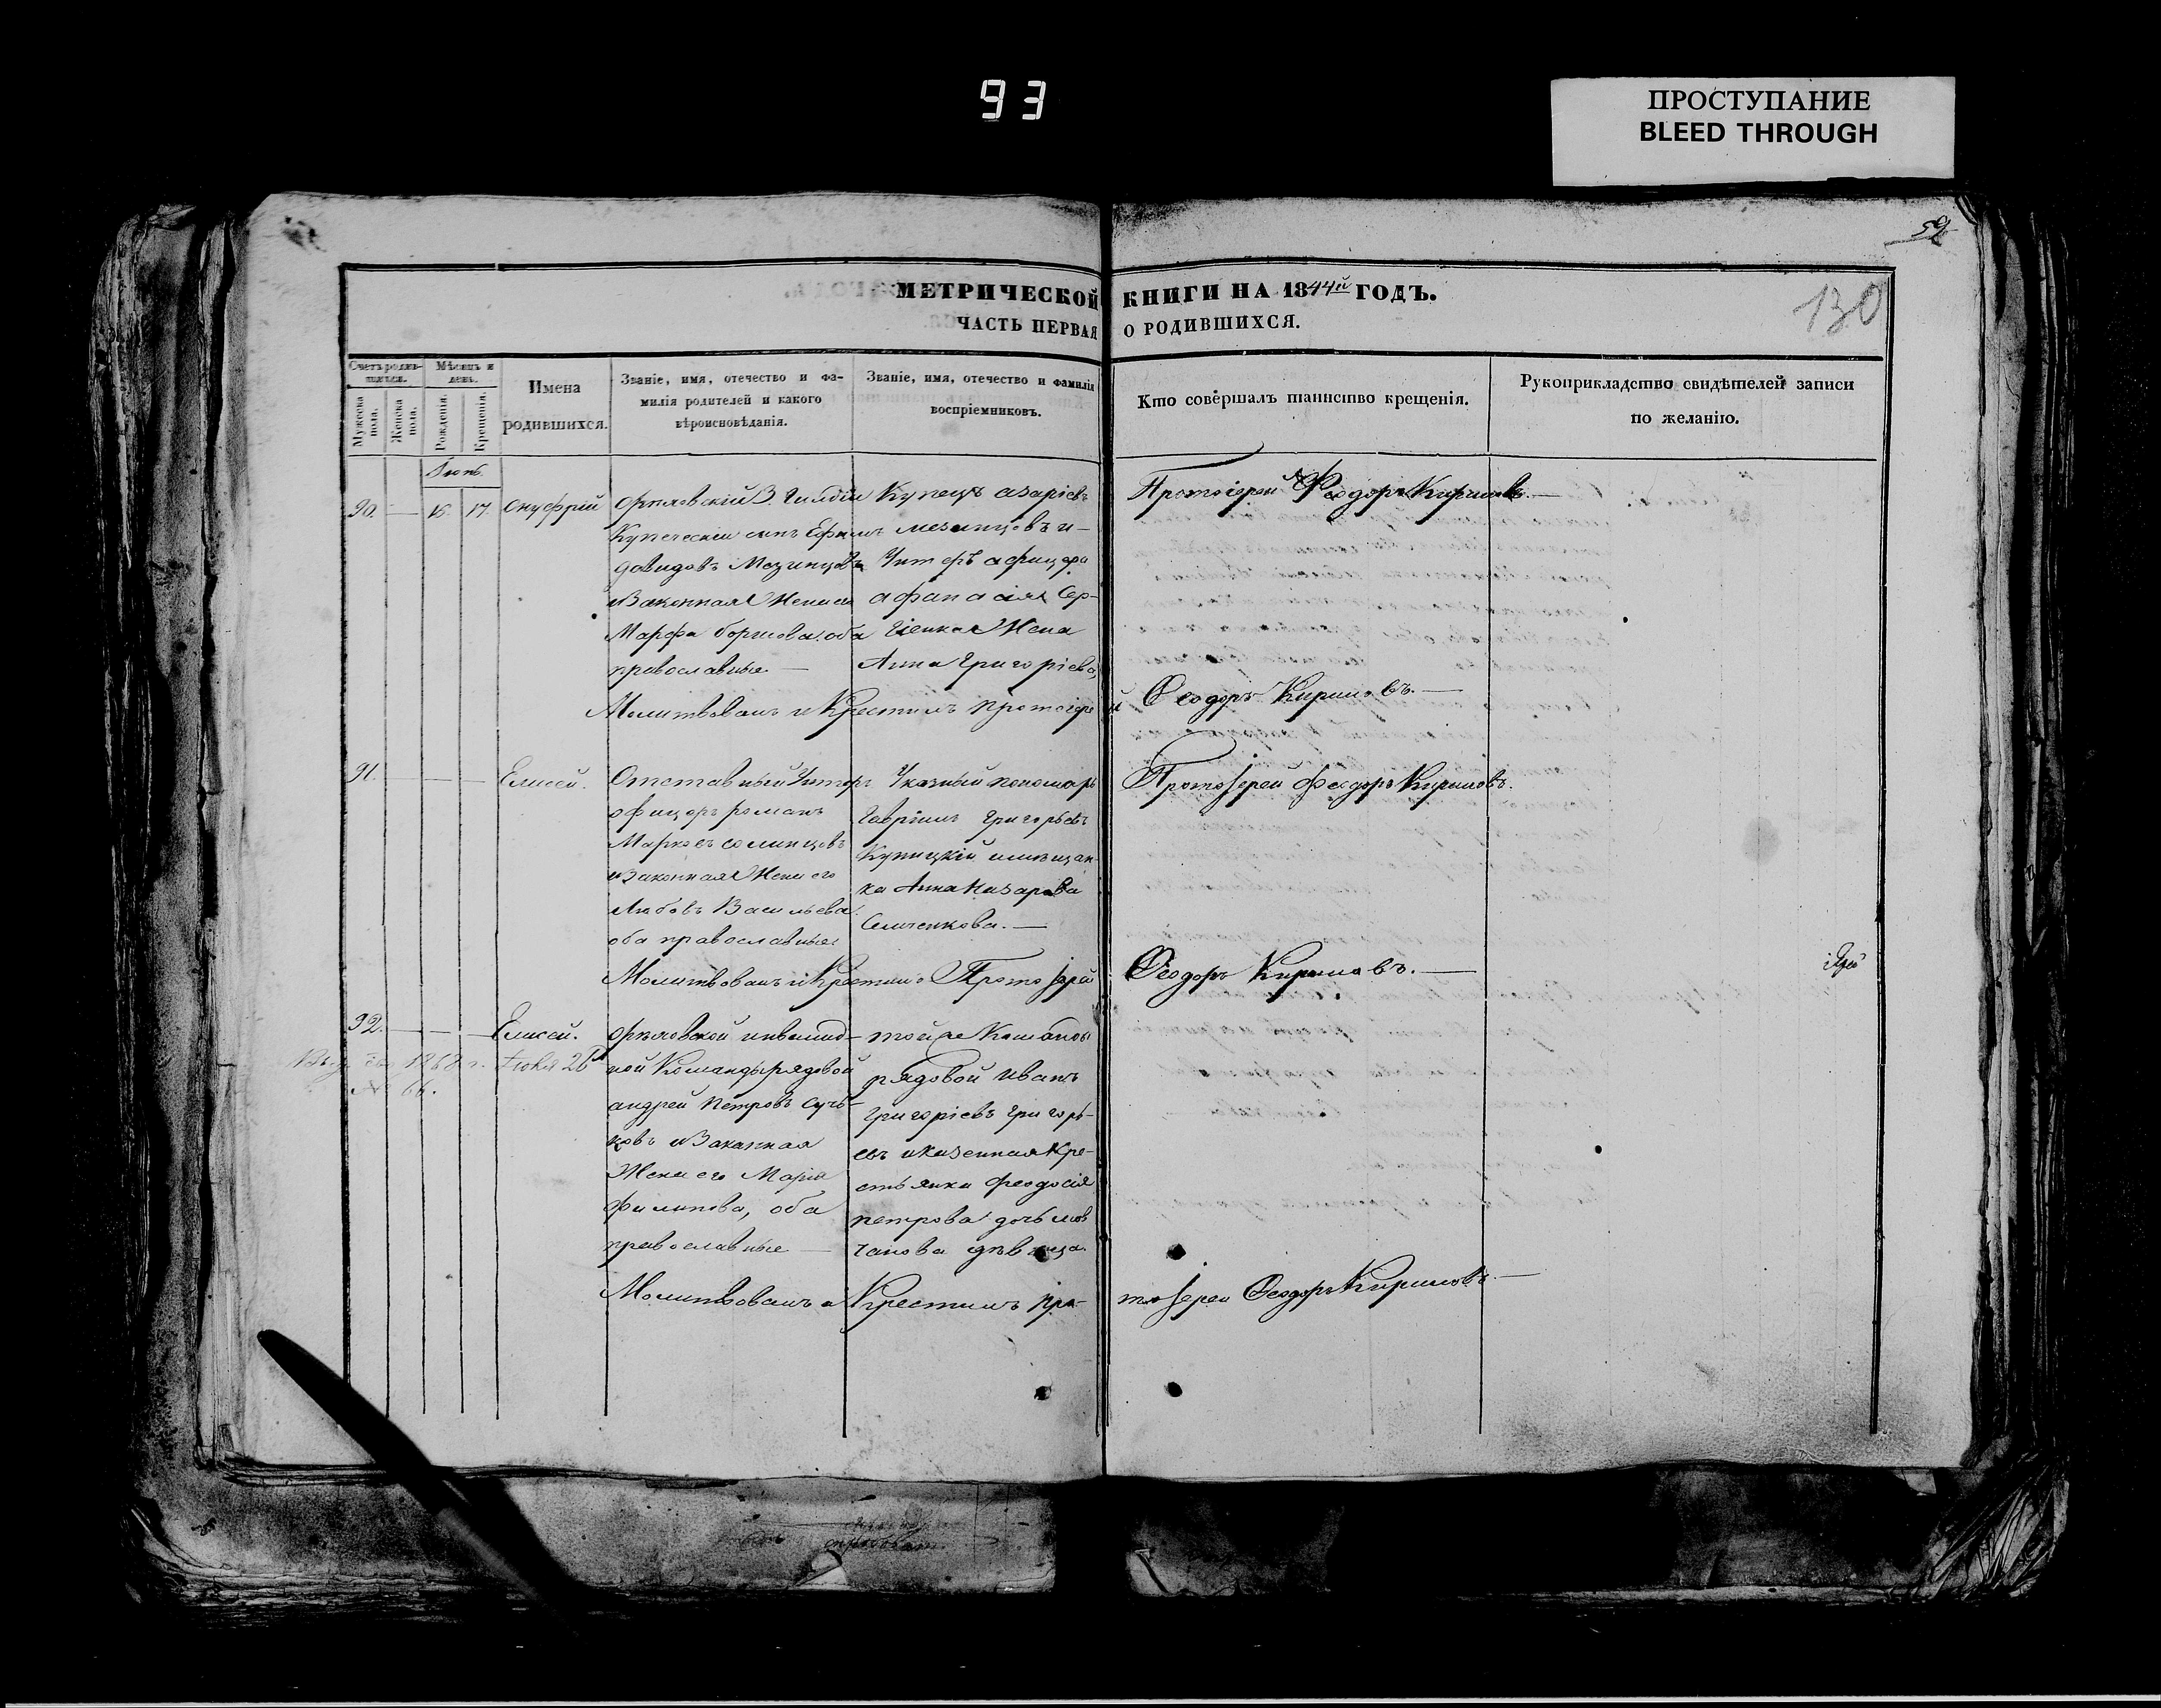 93
ПРОСТУПАНИЕ
BLEED THROUGH
59
130
МЕТРИЧЕСКОЙ КНИГИ НА 1844й ГОДЪ.
ЧАСТЬ ПЕРВАЯ О РОДИВШИХСЯ.
Счетъ родив-
шихся.
Мѣсяцъ и
день.
Мужеска
пола.
Женска
пола.
Рожденія.
Крещенія.
Имена
родившихся.
Званіе, имя, отечество и фа-
милія родителей и какого
вѣроисповѣданія.
Званіе, имя, отечество и фамилія
воспріемниковъ.
Кто совершалъ таинство крещенія.
Рукоприкладство свидѣтелей записи
по желанію.
90.
17.
Онуфрій
3. Гилдіи
Купеческій сынъ Ефимъ
давидовъ Мезинцовъ
и Законная Жена его
Марфа борисова оба
православные
Купецъ азаріевъ
мезинцовъ и
Унтеръ афицера
афанасія Сер-
гіенка Жена
Анна Григоріева
Протоіерей Феодоръ Кириловъ.
Молитвовалъ и Крестилъ протоіерей Феодоръ Кириловъ.
91.
Елисей.
Отставный Унтеръ
офицеръ романъ
Марковъ
и Законная Жена его
Любовь Васильева
оба православные
Указный пономарь
Гавріилъ Григорьевъ
Купицкій и мѣщан-
ка Анна Назарова
Семченкова.
Протоіерей Феодоръ Кириловъ.
Молитвовалъ и Крестилъ Протоіерей Феодоръ Кириловъ.
92.
Елисей.
1868 г. Іюня 26
№ 66.
инвалид-
ной Команды рядовой
андрей Петровъ Суч-
ковъ и Законная
Жена его Марія
Филипова, оба
православные
той же Команды
рядовой Иванъ
Григоріевъ Григорь-
евъ и казенная Кре-
стьянка Феодосія
петрова дочь мов
чанова дѣвица.
Молитвовалъ и Крестилъ про-
тоіерей Феодоръ Кириловъ